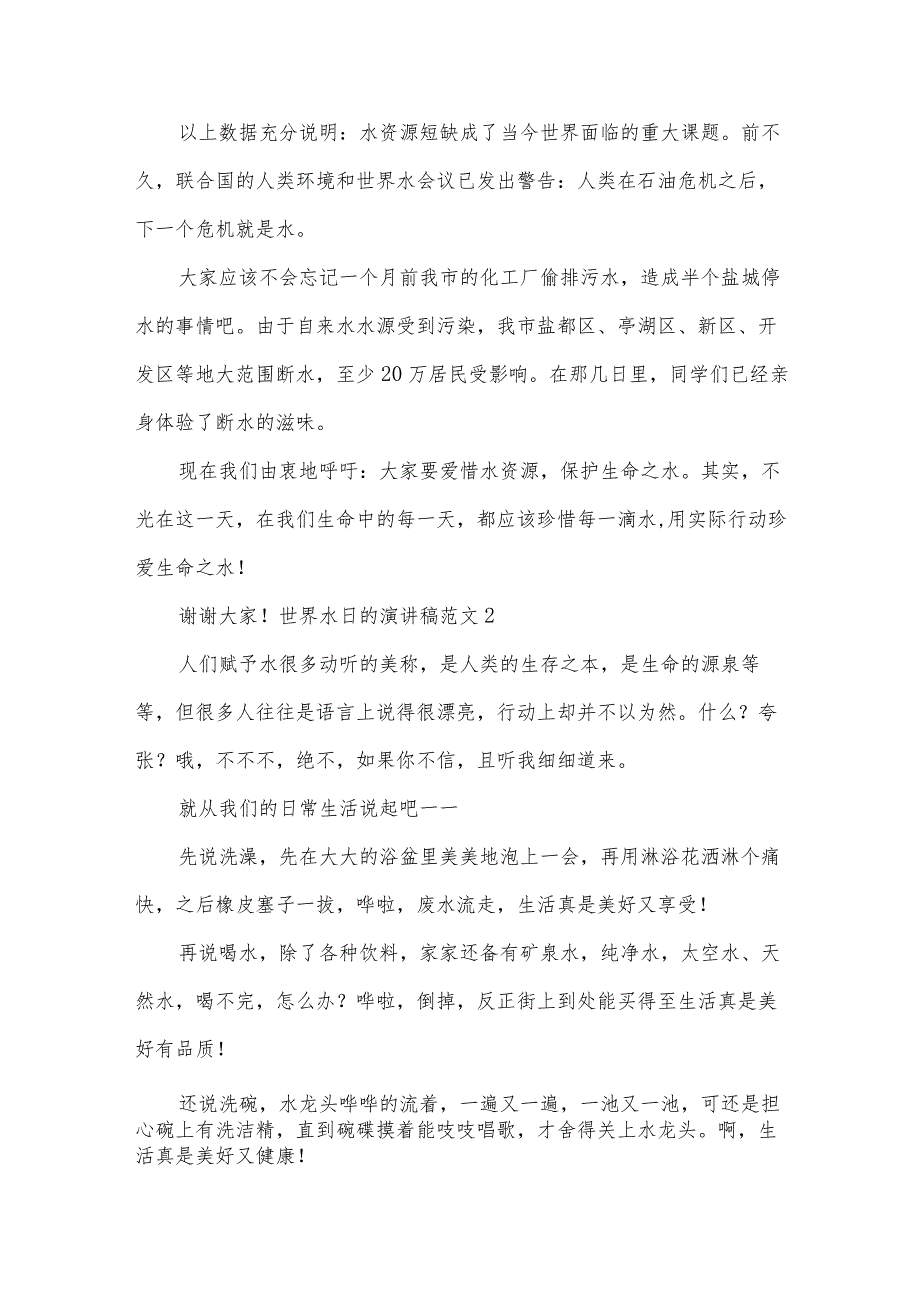 以上数据充分说明：水资源短缺成了当今世界面临的重大课题。前不
久，联合国的人类环境和世界水会议已发出警告：人类在石油危机之后，
下一个危机就是水。
大家应该不会忘记一个月前我市的化工厂偷排污水，造成半个盐城停
水的事情吧。由于自来水水源受到污染，我市盐都区、亭湖区、新区、开
发区等地大范围断水，至少 20 万居民受影响。在那几日里，同学们已经亲
身体验了断水的滋味。
现在我们由衷地呼吁：大家要爱惜水资源，保护生命之水。其实，不
光在这一天，在我们生命中的每一天，都应该珍惜每一滴水,用实际行动珍
爱生命之水！
谢谢大家！世界水日的演讲稿范文 2
人们赋予水很多动听的美称，是人类的生存之本，是生命的源泉等
等，但很多人往往是语言上说得很漂亮，行动上却并不以为然。什么？夸
张？哦，不不不，绝不，如果你不信，且听我细细道来。
就从我们的日常生活说起吧一一
先说洗澡，先在大大的浴盆里美美地泡上一会，再用淋浴花洒淋个痛
快，之后橡皮塞子一拔，哗啦，废水流走，生活真是美好又享受！
再说喝水，除了各种饮料，家家还备有矿泉水，纯净水，太空水、天
然水，喝不完，怎么办？哗啦，倒掉，反正街上到处能买得至生活真是美
好有品质！
还说洗碗，水龙头哗哗的流着，一遍又一遍，一池又一池，可还是担
心碗上有洗洁精，直到碗碟摸着能吱吱唱歌，才舍得关上水龙头。啊，生
活真是美好又健康！